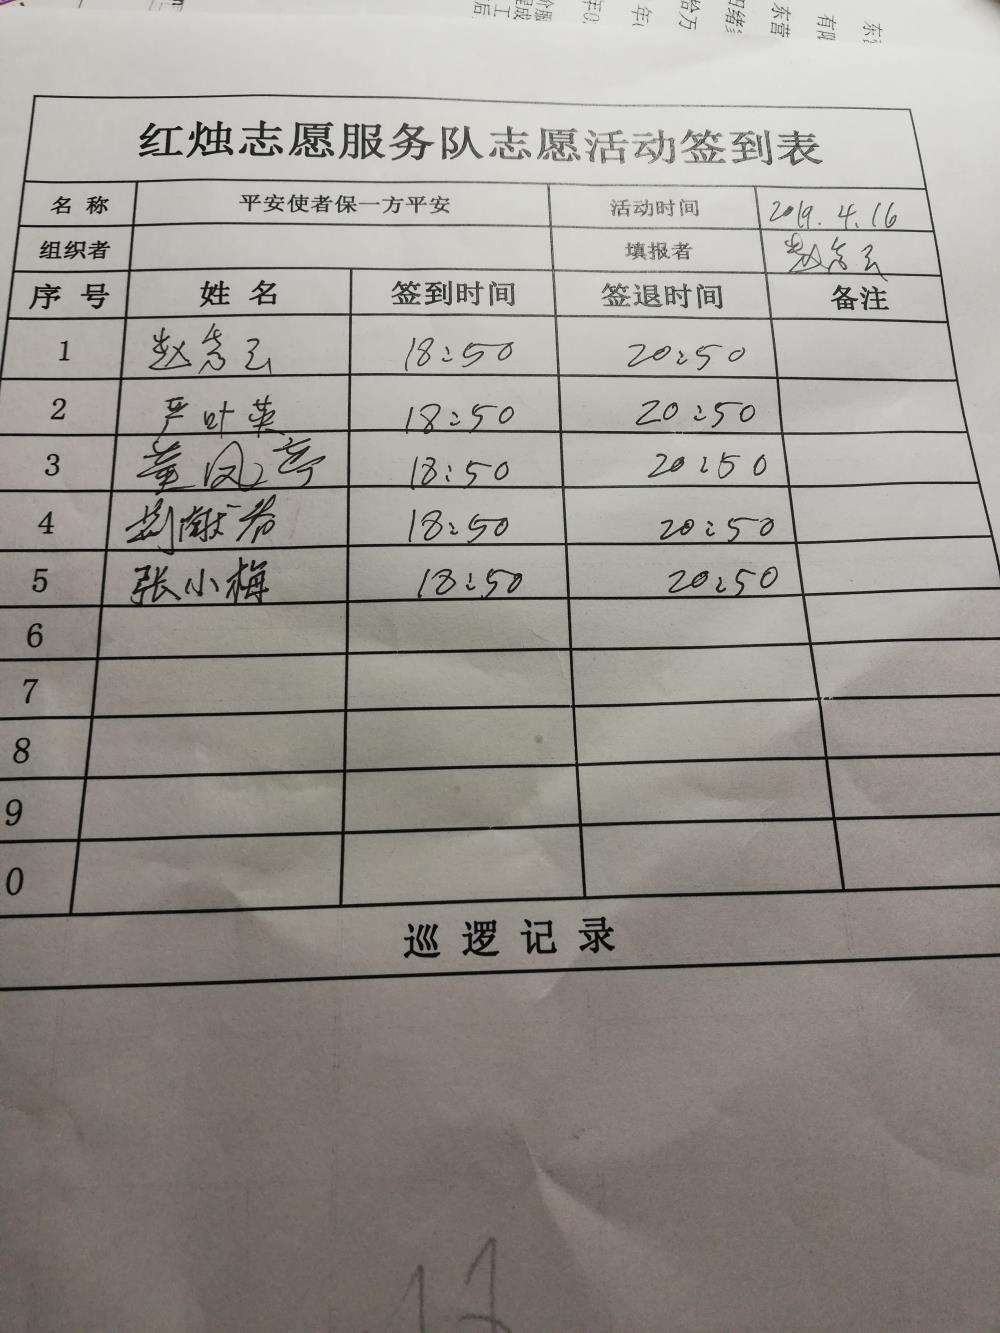 红烛志愿服务队志愿活动签到表
名 称 平安使者保一方平安 活动时间 2019.4.16
组织者 填报者 赵秀云
序 号 姓 名 签到时间 签退时间 备注
1 赵秀云 18:50 20:50
2 严叶英 18:50 20:50
3 董凤 18:50 20:50
4 18:50 20:50
5 张小梅 18:50 20:50
6
7
8
9
0
巡 逻 记 录